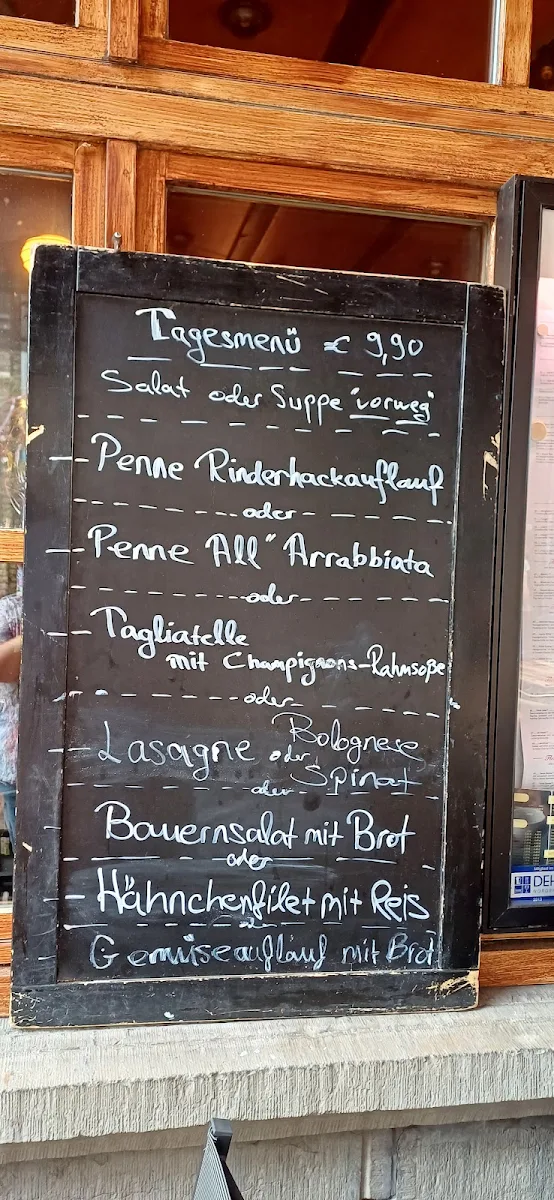 Tagesmenü € 9,90
Salat oder Suppe "vorweg"
Penne Rinderhackauflauf
oder
Penne All" Arrabbiata
oder
Tagliatelle
mit Champignons-Rahmsoße
oder
Lasagne oder Bolognese
Spinat
oder
Bauernsalat mit Brot
oder
Hähnchenfilet mit Reis
Gemüseauflauf mit Brot
DEH